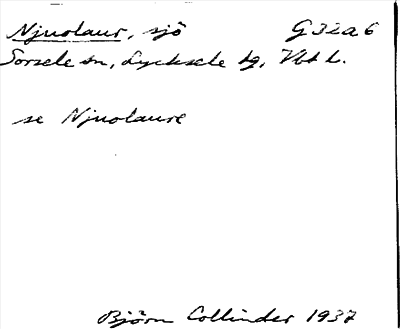 Njuolaur, sjö G 32 a 6
Sorsele sn, Lycksele tg, Vbt l.
se Njuolaure
Björn Collinder 1937